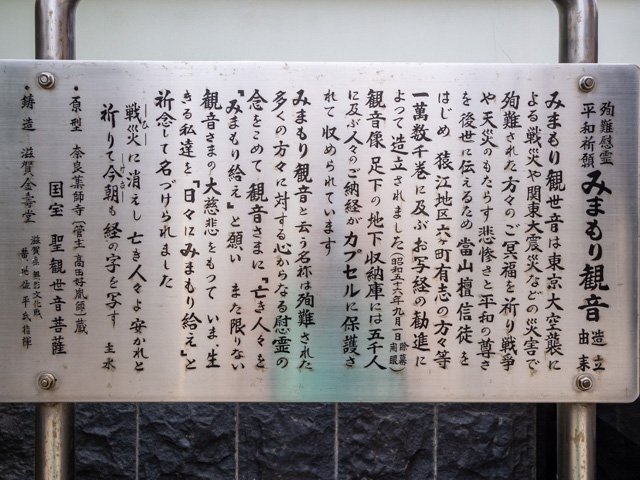 殉難慰霊
平和祈願
みまもり観音
造立
由来
みまもり観世音は東京大空襲に
よる戦災や関東大震災などの災害で
殉難された方々のご冥福を祈り戦争
や天災のもたらす悲惨さと平和の尊さ
を後世に伝えるため當山檀信徒を
はじめ猿江地区六ヶ町有志の方々等
一萬数千巻に及ぶお写経の勧進に
よって造立されました(昭和五十六年九月一日除幕開眼)
観音像足下の地下収納庫には五千人
に及ぶ人々のご納経がカプセルに保護さ
れて収められています
みまもり観音と云う名称は殉難された
多くの方々に対する心からなる慰霊の
念をこめて観音さまに『亡き人々を
みまもり給え』と願い また限りない
観音さまの大慈悲をもっていま生
きる私達を『日々にみまもり給え』と
祈念して名づけられました
戦災に消えし亡き人々よ安かれと
ひ
祈りて今朝も経の字を写す 圭水
けさ
・原型 奈良薬師寺(管主高田好胤師)蔵
国宝 聖観世音菩薩
・鋳造 滋賀金壽堂
滋賀県無形文化財
黄地佐平氏指揮